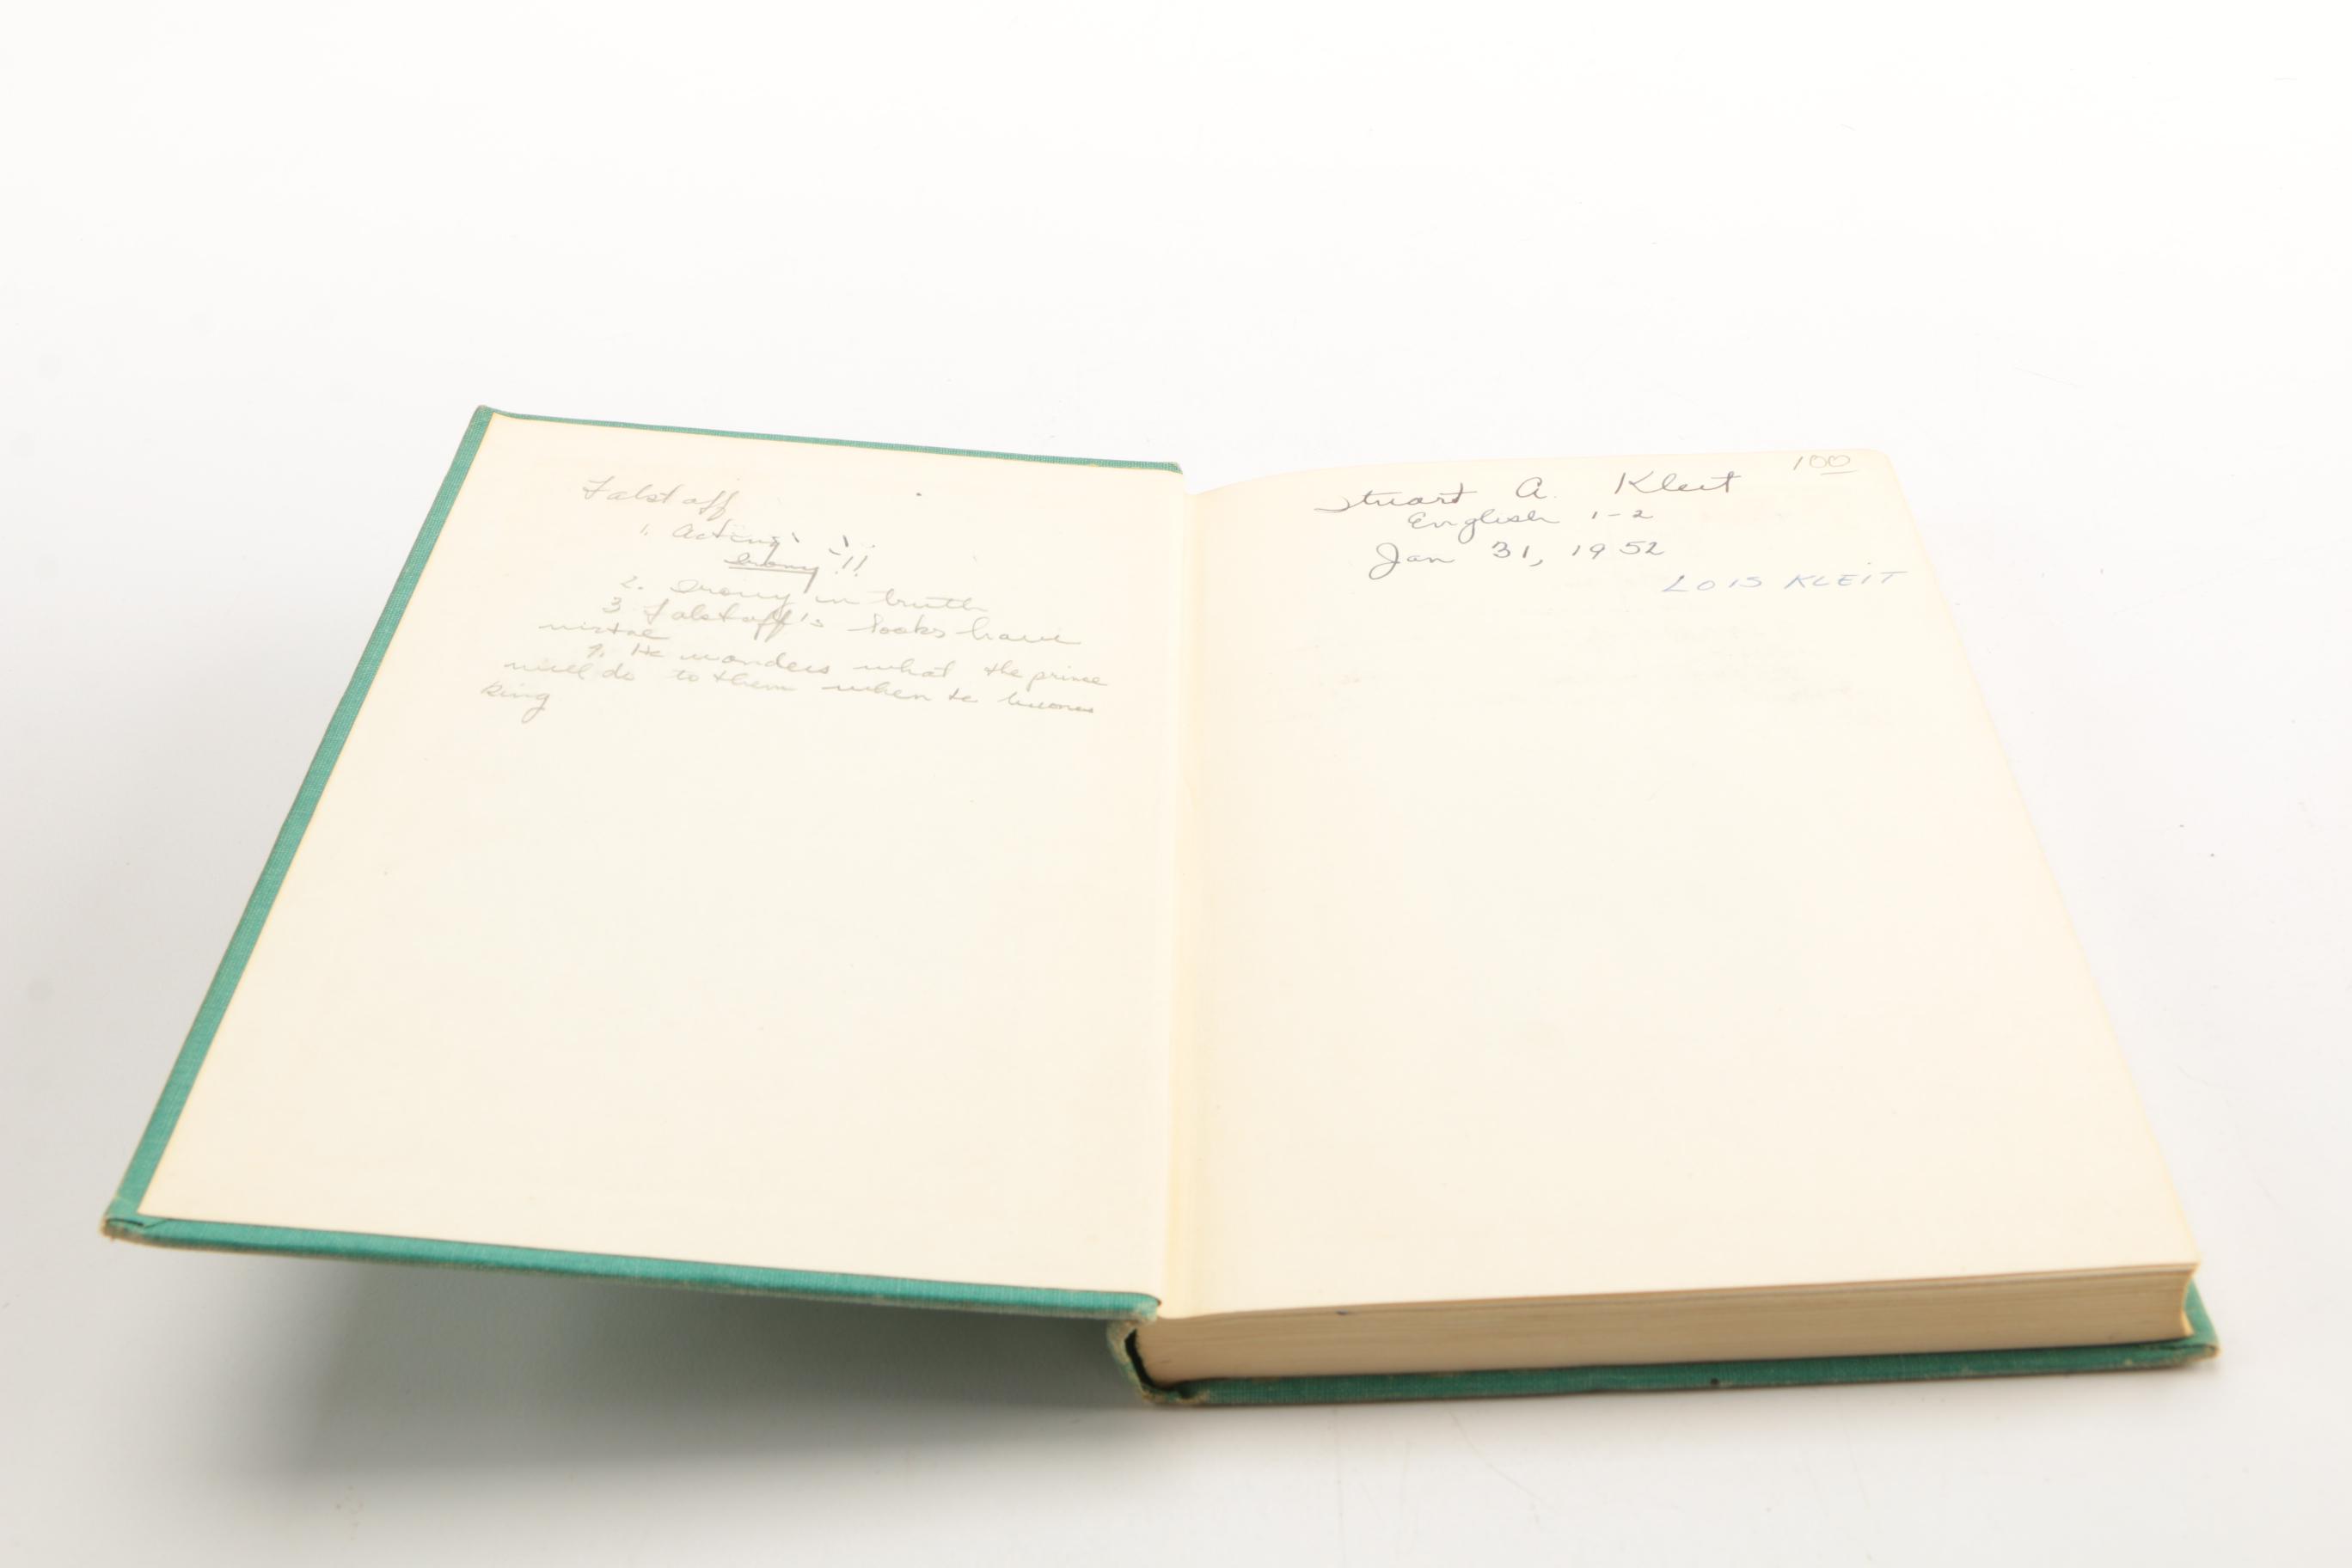 Falstaff
1. Acting
Irony !!
2. Irony in truth
3 Falstaff's looks have
virtue
4. He wonders what the prince
will do to them when he becomes
King
100
Stuart A. Kleit
English 1-2
Jan 31, 1952
LOIS KLEIT